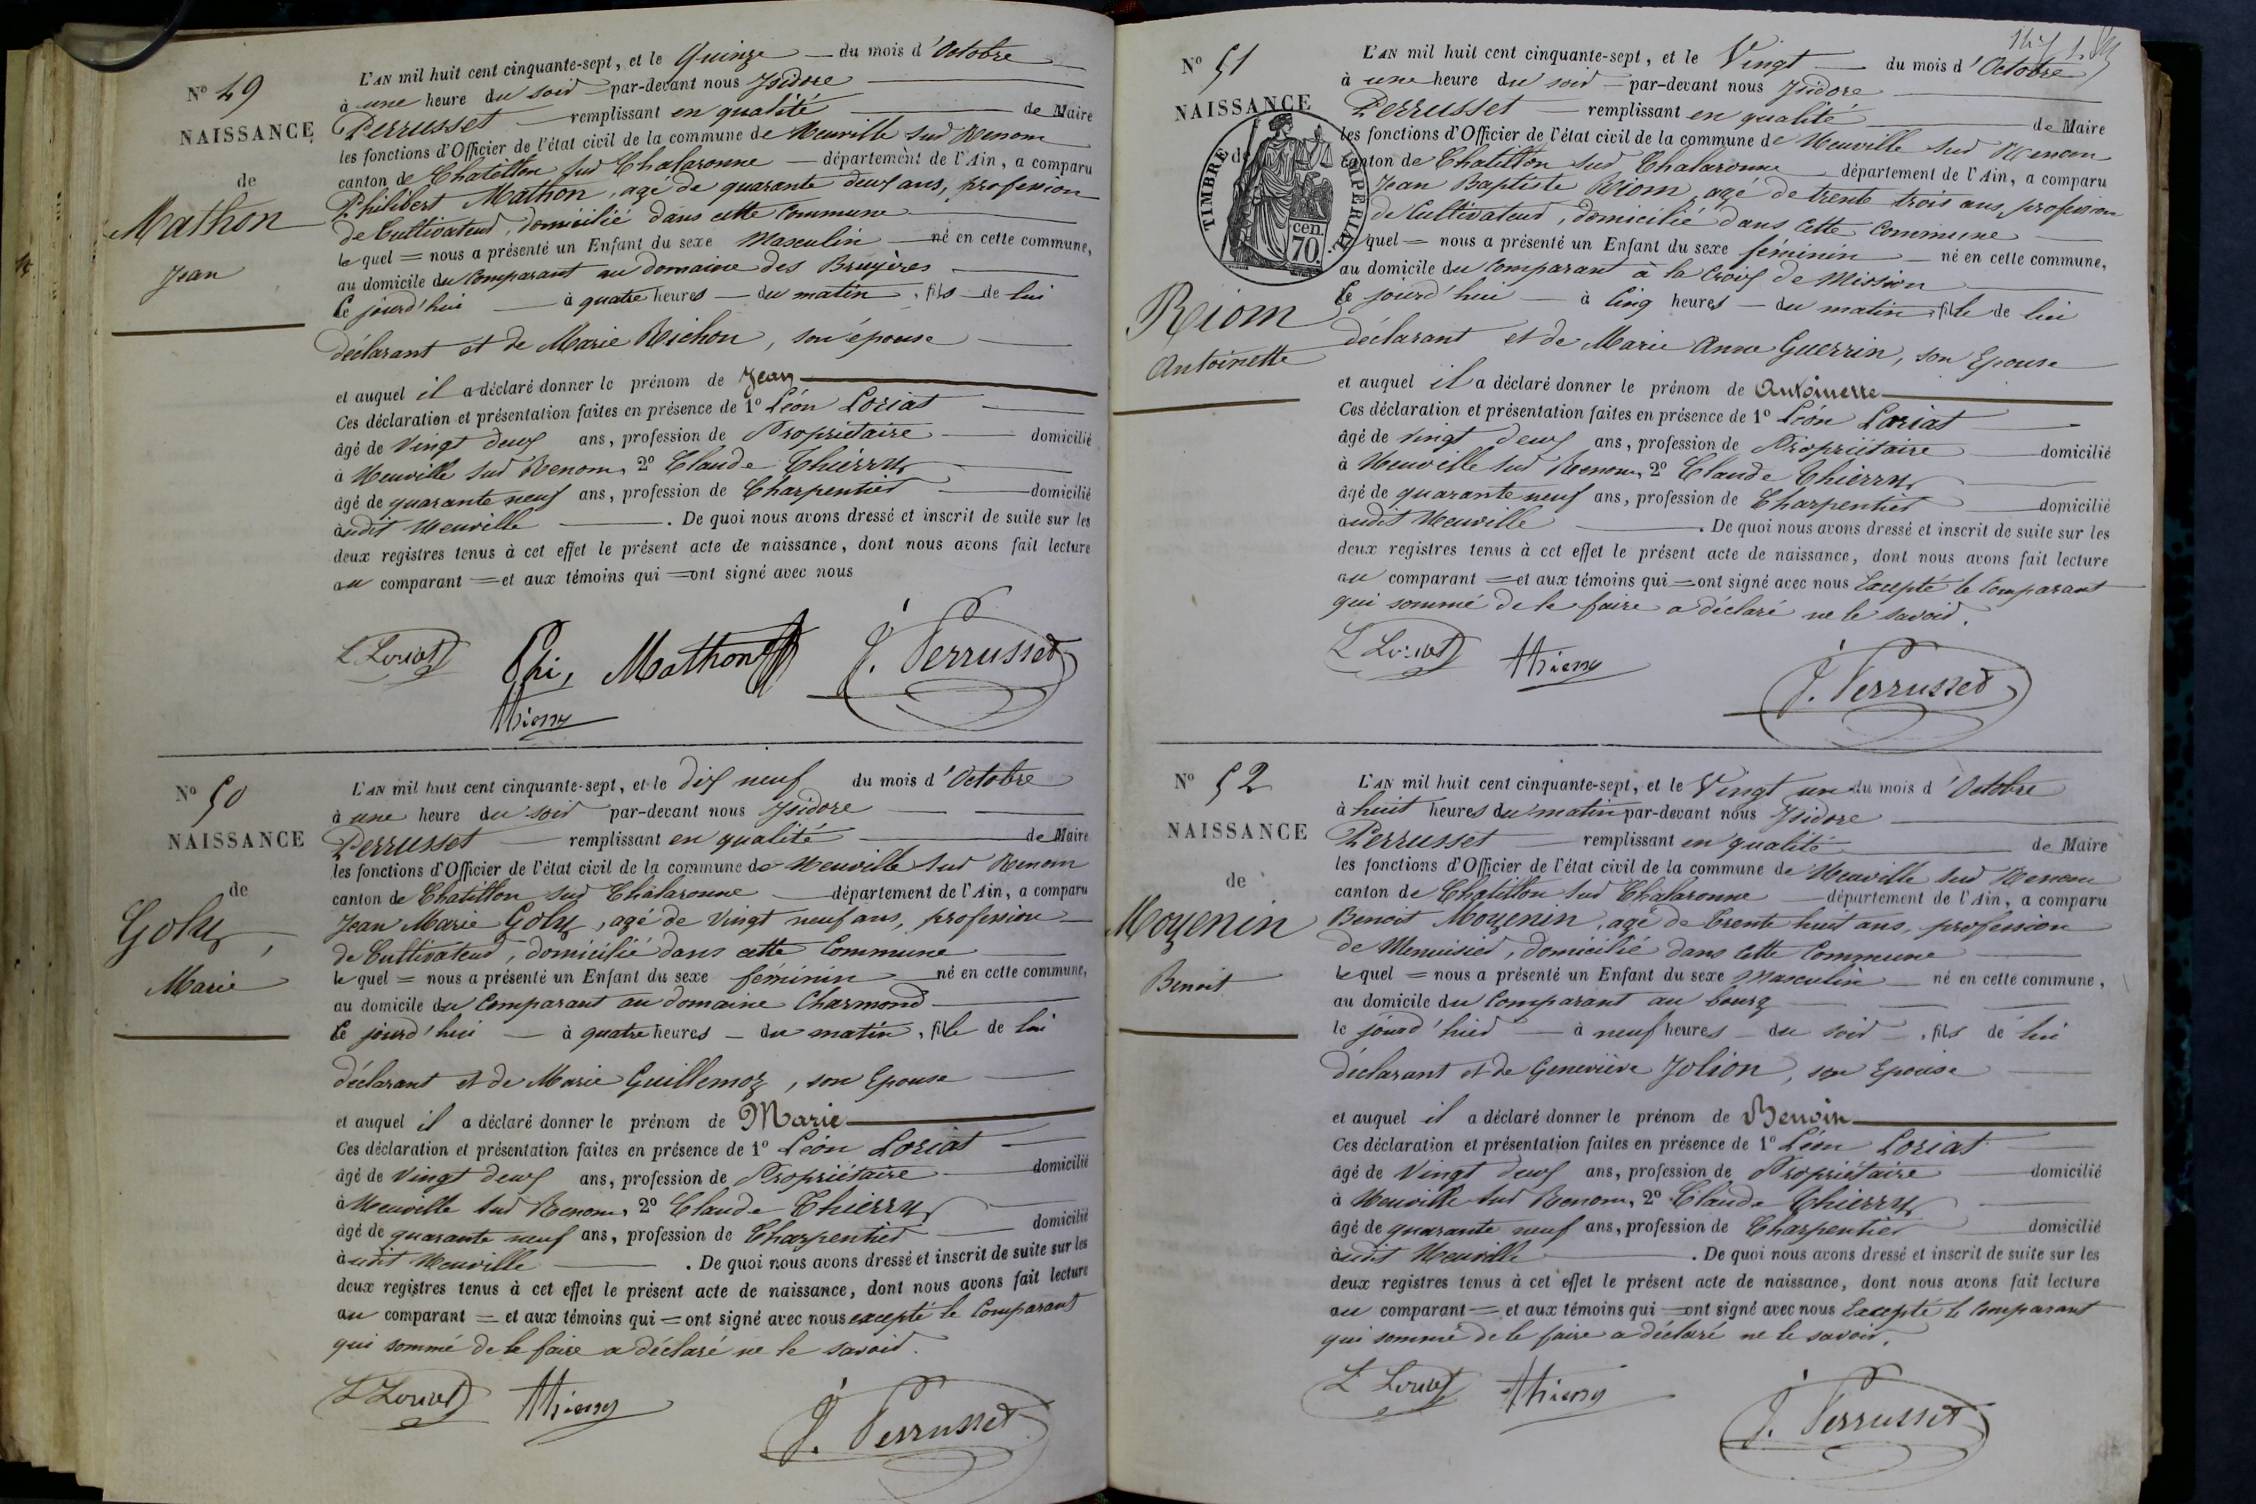 N° 49
NAISSANCE
de
Mathon
Jean
L'AN mil huit cent cinquante-sept, et le Quinze du mois d'Octobre
à une heure du soir par-devant nous Isidore
Perrusset remplissant en qualité de Maire
les fonctions d'Officier de l'état civil de la commune de Neuville sur Renom
canton de Chatillon sur Chalaronne département de l'Ain, a comparu
Philibert Mathon, agé de quarante deux ans, profession
de Cultivateur, domicilié dans cette Commune
le quel = nous a présenté un Enfant du sexe Masculin né en cette commune,
au domicile du Comparant au domaine des Bruyères
Ce jourd'hui à quatre heures du matin, fils de lui
déclarant et de Marie Richon, son épouse
et auquel il a déclaré donner le prénom de Jean
Ces déclaration et présentation faites en présence de 1° Léon Loriat
âgé de Vingt deux ans, profession de Propriétaire domicilié
à Neuville sur Renom, 2° Claude Thierry
âgé de quarante neuf ans, profession de Charpentier domicilié
audit Neuville . De quoi nous avons dressé et inscrit de suite sur les
deux registres tenus à cet effet le présent acte de naissance, dont nous avons fait lecture
au comparant = et aux témoins qui = ont signé avec nous
L Loriat Phi, Mathon J. Perrusset
Thierry
N° 50
NAISSANCE
de
Goly,
Marie
L'AN mil huit cent cinquante-sept, et le dix neuf du mois d'Octobre
à une heure du soir par-devant nous Isidore
Perrusset remplissant en qualité de Maire
les fonctions d'Officier de l'état civil de la commune de Neuville sur Renom
canton de Chatillon sur Chalaronne département de l'Ain, a comparu
Jean Marie Goly, agé de Vingt neuf ans, profession
de Cultivateur, domicilié dans cette Commune
le quel = nous a présenté un Enfant du sexe féminin né en cette commune,
au domicile du Comparant au domaine Charmond
Ce jourd'hui à quatre heures du matin, fille de lui
déclarant et de Marie Guillemoz, son Epouse
et auquel il a déclaré donner le prénom de Marie
Ces déclaration et présentation faites en présence de 1° Léon Loriat
âgé de Vingt deux ans, profession de Propriétaire domicilié
à Neuville sur Renom, 2° Claude Thierry
âgé de quarante neuf ans, profession de Charpentier domicilié
audit Neuville . De quoi nous avons dressé et inscrit de suite sur les
deux registres tenus à cet effet le présent acte de naissance, dont nous avons fait lecture
au comparant = et aux témoins qui = ont signé avec nous excepté le Comparant
qui sommé de le faire a déclaré ne le savoir.
L Loriat Thierry J. Perrusset
N° 51
NAISSANCE
de
TIMBRE IMPÉRIAL
cen.
70.
Riom
Antoinette
L'AN mil huit cent cinquante-sept, et le Vingt du mois d'Octobre
à une heure du soir par-devant nous Isidore
Perrusset remplissant en qualité de Maire
les fonctions d'Officier de l'état civil de la commune de Neuville sur Renom
canton de Chatillon sur Chalaronne département de l'Ain, a comparu
Jean Baptiste Riom, agé de trente trois ans, profession
de Cultivateur, domicilié dans cette Commune
lequel = nous a présenté un Enfant du sexe féminin né en cette commune,
au domicile du Comparant à la Croix de Mission
Ce jourd'hui à Cinq heures du matin, fille de lui
déclarant et de Marie Anne Guerrin, son Epouse
et auquel il a déclaré donner le prénom de Antoinette
Ces déclaration et présentation faites en présence de 1° Léon Loriat
âgé de vingt deux ans, profession de Propriétaire domicilié
à Neuville sur Renom, 2° Claude Thierry
âgé de quarante neuf ans, profession de Charpentier domicilié
audit Neuville . De quoi nous avons dressé et inscrit de suite sur les
deux registres tenus à cet effet le présent acte de naissance, dont nous avons fait lecture
au comparant = et aux témoins qui = ont signé avec nous Excepté le Comparant
qui sommé de le faire a déclaré ne le savoir.
L Loriat Thierry J. Perrusset
N° 52
NAISSANCE
de
Moyenin
Benoit
L'AN mil huit cent cinquante-sept, et le Vingt un du mois d'Octobre
à huit heures du matin par-devant nous Isidore
Perrusset remplissant en qualité de Maire
les fonctions d'Officier de l'état civil de la commune de Neuville sur Renom
canton de Chatillon sur Chalaronne département de l'Ain, a comparu
Benoit Moyenin, agé de trente huit ans, profession
de Menuisier, domicilié dans cette Commune
le quel = nous a présenté un Enfant du sexe Masculin né en cette commune,
au domicile du Comparant au bourg
le jourd'hier à neuf heures du soir, fils de lui
déclarant et de Geneviève Jolion, son Epouse
et auquel il a déclaré donner le prénom de Benoit
Ces déclaration et présentation faites en présence de 1° Léon Loriat
âgé de Vingt deux ans, profession de Propriétaire domicilié
à Neuville sur Renom, 2° Claude Thierry
âgé de quarante neuf ans, profession de Charpentier domicilié
audit Neuville . De quoi nous avons dressé et inscrit de suite sur les
deux registres tenus à cet effet le présent acte de naissance, dont nous avons fait lecture
au comparant = et aux témoins qui = ont signé avec nous Excepté le Comparant
qui sommé de le faire a déclaré ne le savoir.
L Loriat Thierry J. Perrusset